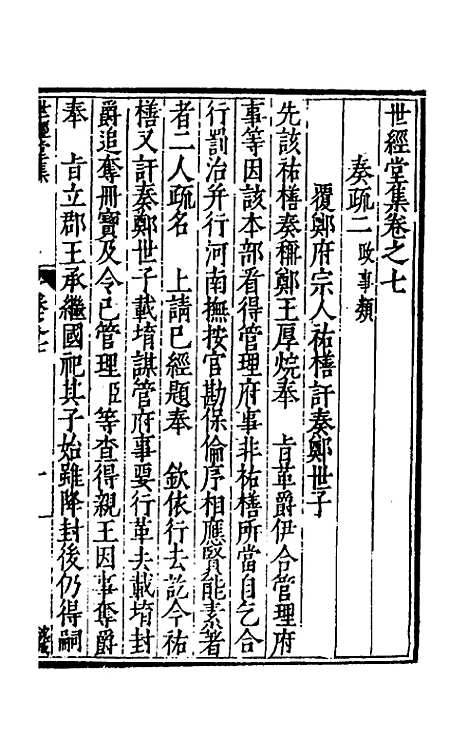 世經堂集卷之七
奏疏二 政事類
覆鄭府宗人祐橏訐奏鄭世子
先該祐橏奏稱鄭王厚烷奉 㫖革爵伊合管理府
事等因該本部看得管理府事非祐橏所當自乞合
行罰治并行河南撫按官勘保倫序相應賢能素著
者二人疏名 上請已經題奉 欽依行去訖今祐
橏又訐奏鄭世子載堉謀管府事要行革去載堉封
爵追奪冊寶及令已管理臣等查得親王因事奪爵
奉 㫖立郡王承繼國祀其子始雖降封後仍得嗣
世經堂集 卷之七 一